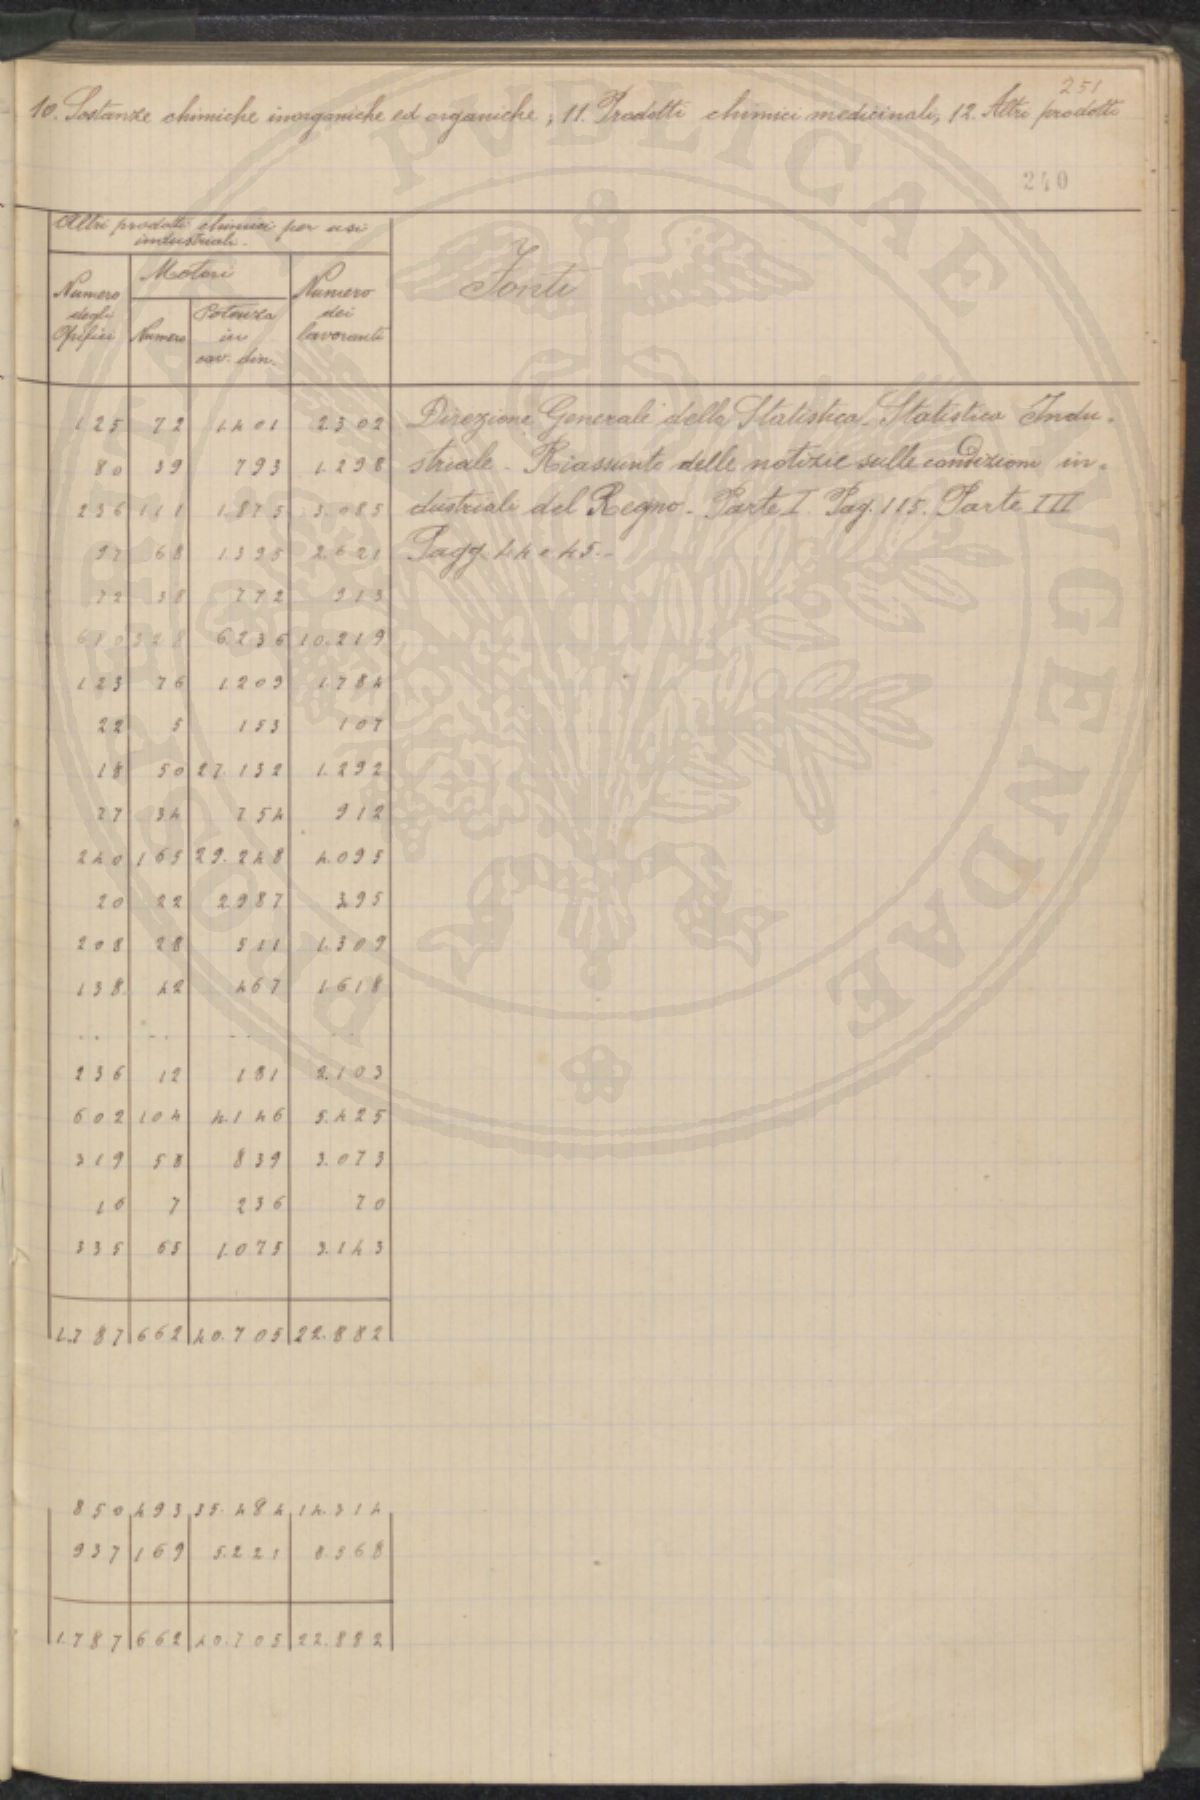 251
10. Sostanze chimiche inorganiche ed organiche; 11. Prodotti chimici medicinali, 12. Altri prodotti
240
Altri prodotti chimici per usi
industriali.
Numero degli Opifici
Motori
Numero
Potenza in cav. din.
Numero dei lavoranti
Fonti
125 72 1.401 2.302 Direzione Generale della Statistica. Statistica Indu-
80 39 793 1.298 striale - Riassunto delle notizie sulle condizioni in-
236 111 1.875 3.085 dustriali del Regno - Parte I Pag. 115. Parte III
97 68 1.395 2.621 Pagg. 44 e 45.-
72 38 772 913
610 328 6.236 10.219
123 76 1.209 1.784
22 5 153 107
18 50 27.132 1.292
77 34 754 912
240 165 29.248 4.095
20 22 2.987 395
208 28 511 1.309
138 42 467 1.618
.. .. .. ..
236 12 181 2.103
602 104 4.146 5.425
319 58 839 3.073
16 7 236 70
335 65 1.075 3.143
1.787 662 40.705 22.882
850 493 35.484 14.314
937 169 5.221 8.568
1.787 662 40.705 22.882
PUBLICAE VIGENDAE POST